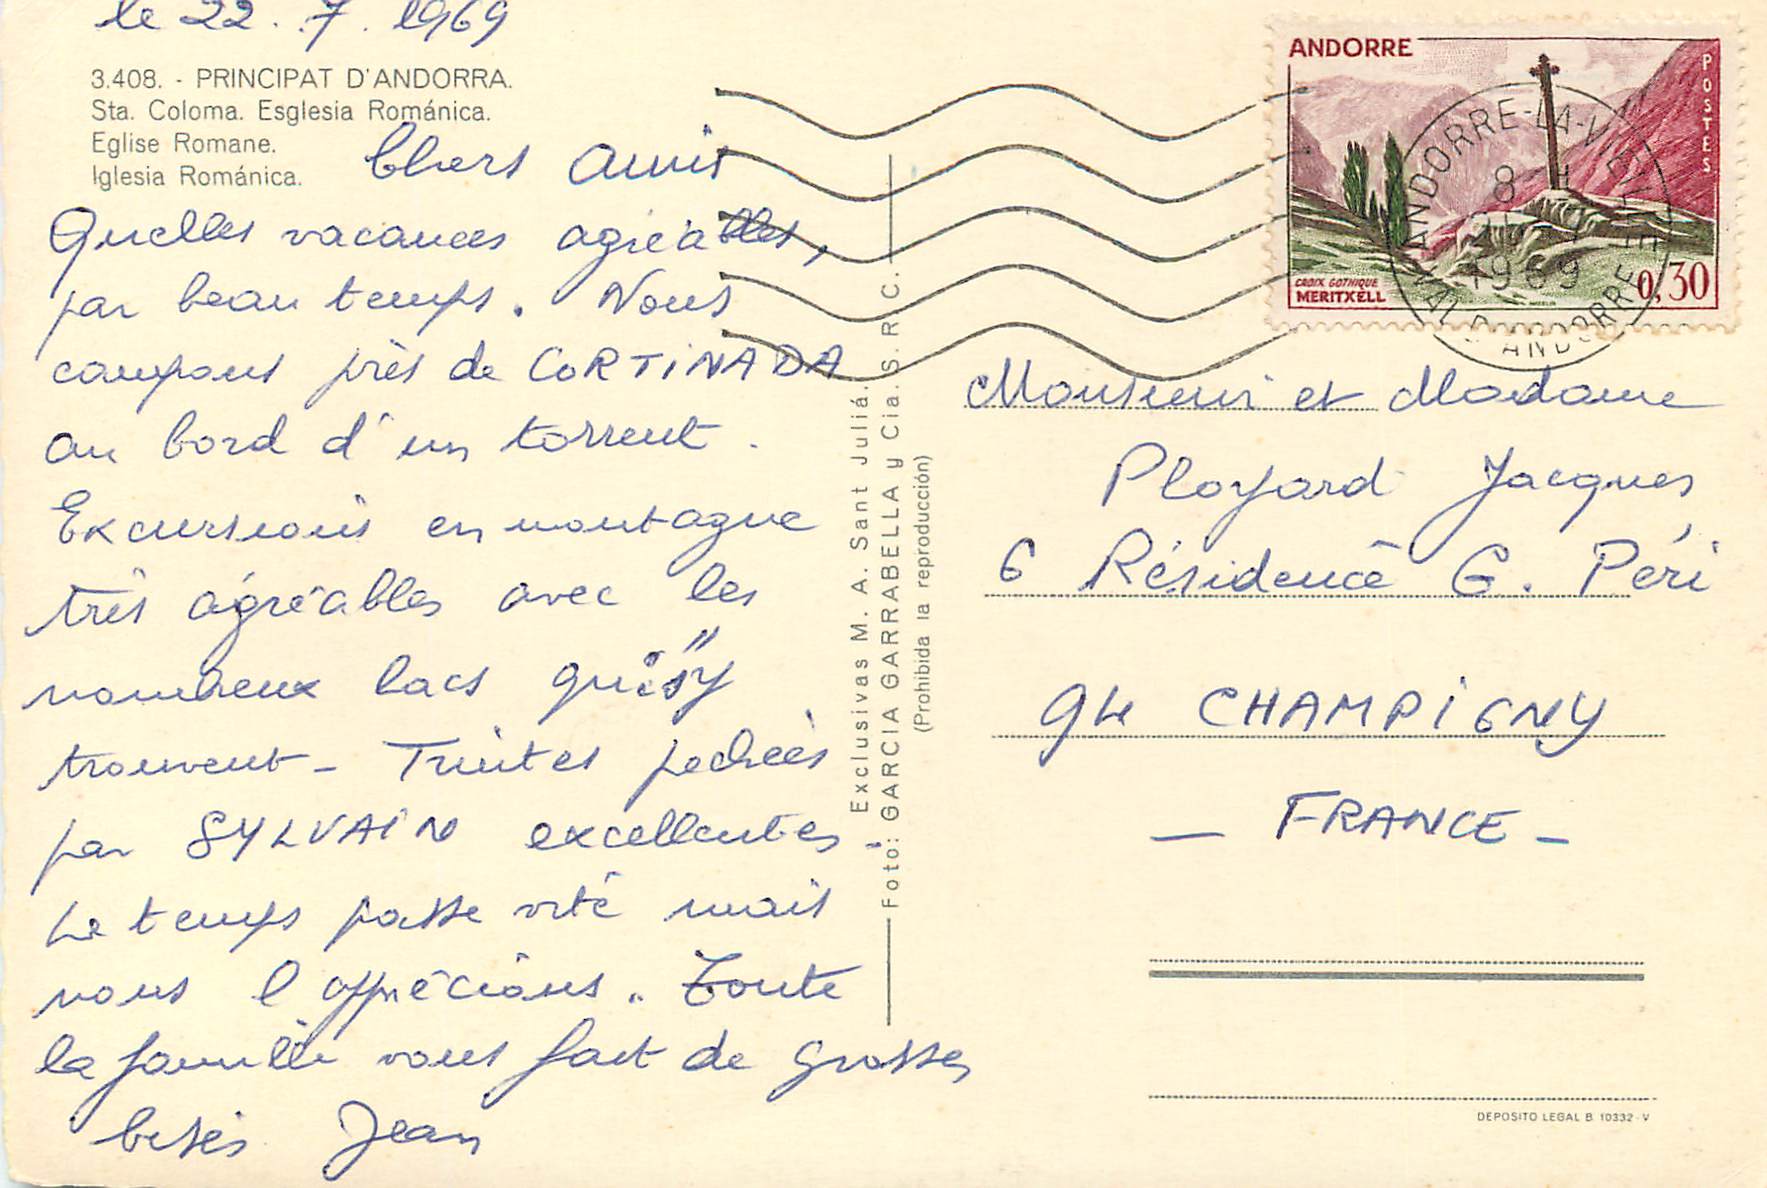 le 22.7.1969
3.408. - PRINCIPAT D'ANDORRA.
Sta. Coloma. Esglesia Románica.
Eglise Romane.
Iglesia Románica.
Chers Amis
Quelles vacances agréables,
par beau temps. Nous
campons près de CORTINADA
au bord d'un torrent.
Excursions en montagne
très agréables avec les
nombreux lacs qui s'y
trouvent - Truites pechées
par SYLVAIN excellentes.
Le temps passe vite mais
nous l'apprécions. Toute
la famille vous fait de grosses
bises Jean
Exclusivas M. A. Sant Juliá.
Foto: GARCIA GARRABELLA y Cia. S. R. C.
(Prohibida la reproducción)
ANDORRE
POSTES
CROIX GOTHIQUE
MERITXELL
0,30
ANDORRE-LA-VIEILLE
8 H
1969
VAL D'ANDORRE
Monsieur et Madame
Ployard Jacques
6 Résidence G. Péri
94 CHAMPIGNY
- FRANCE -
DEPOSITO LEGAL B. 10332-V